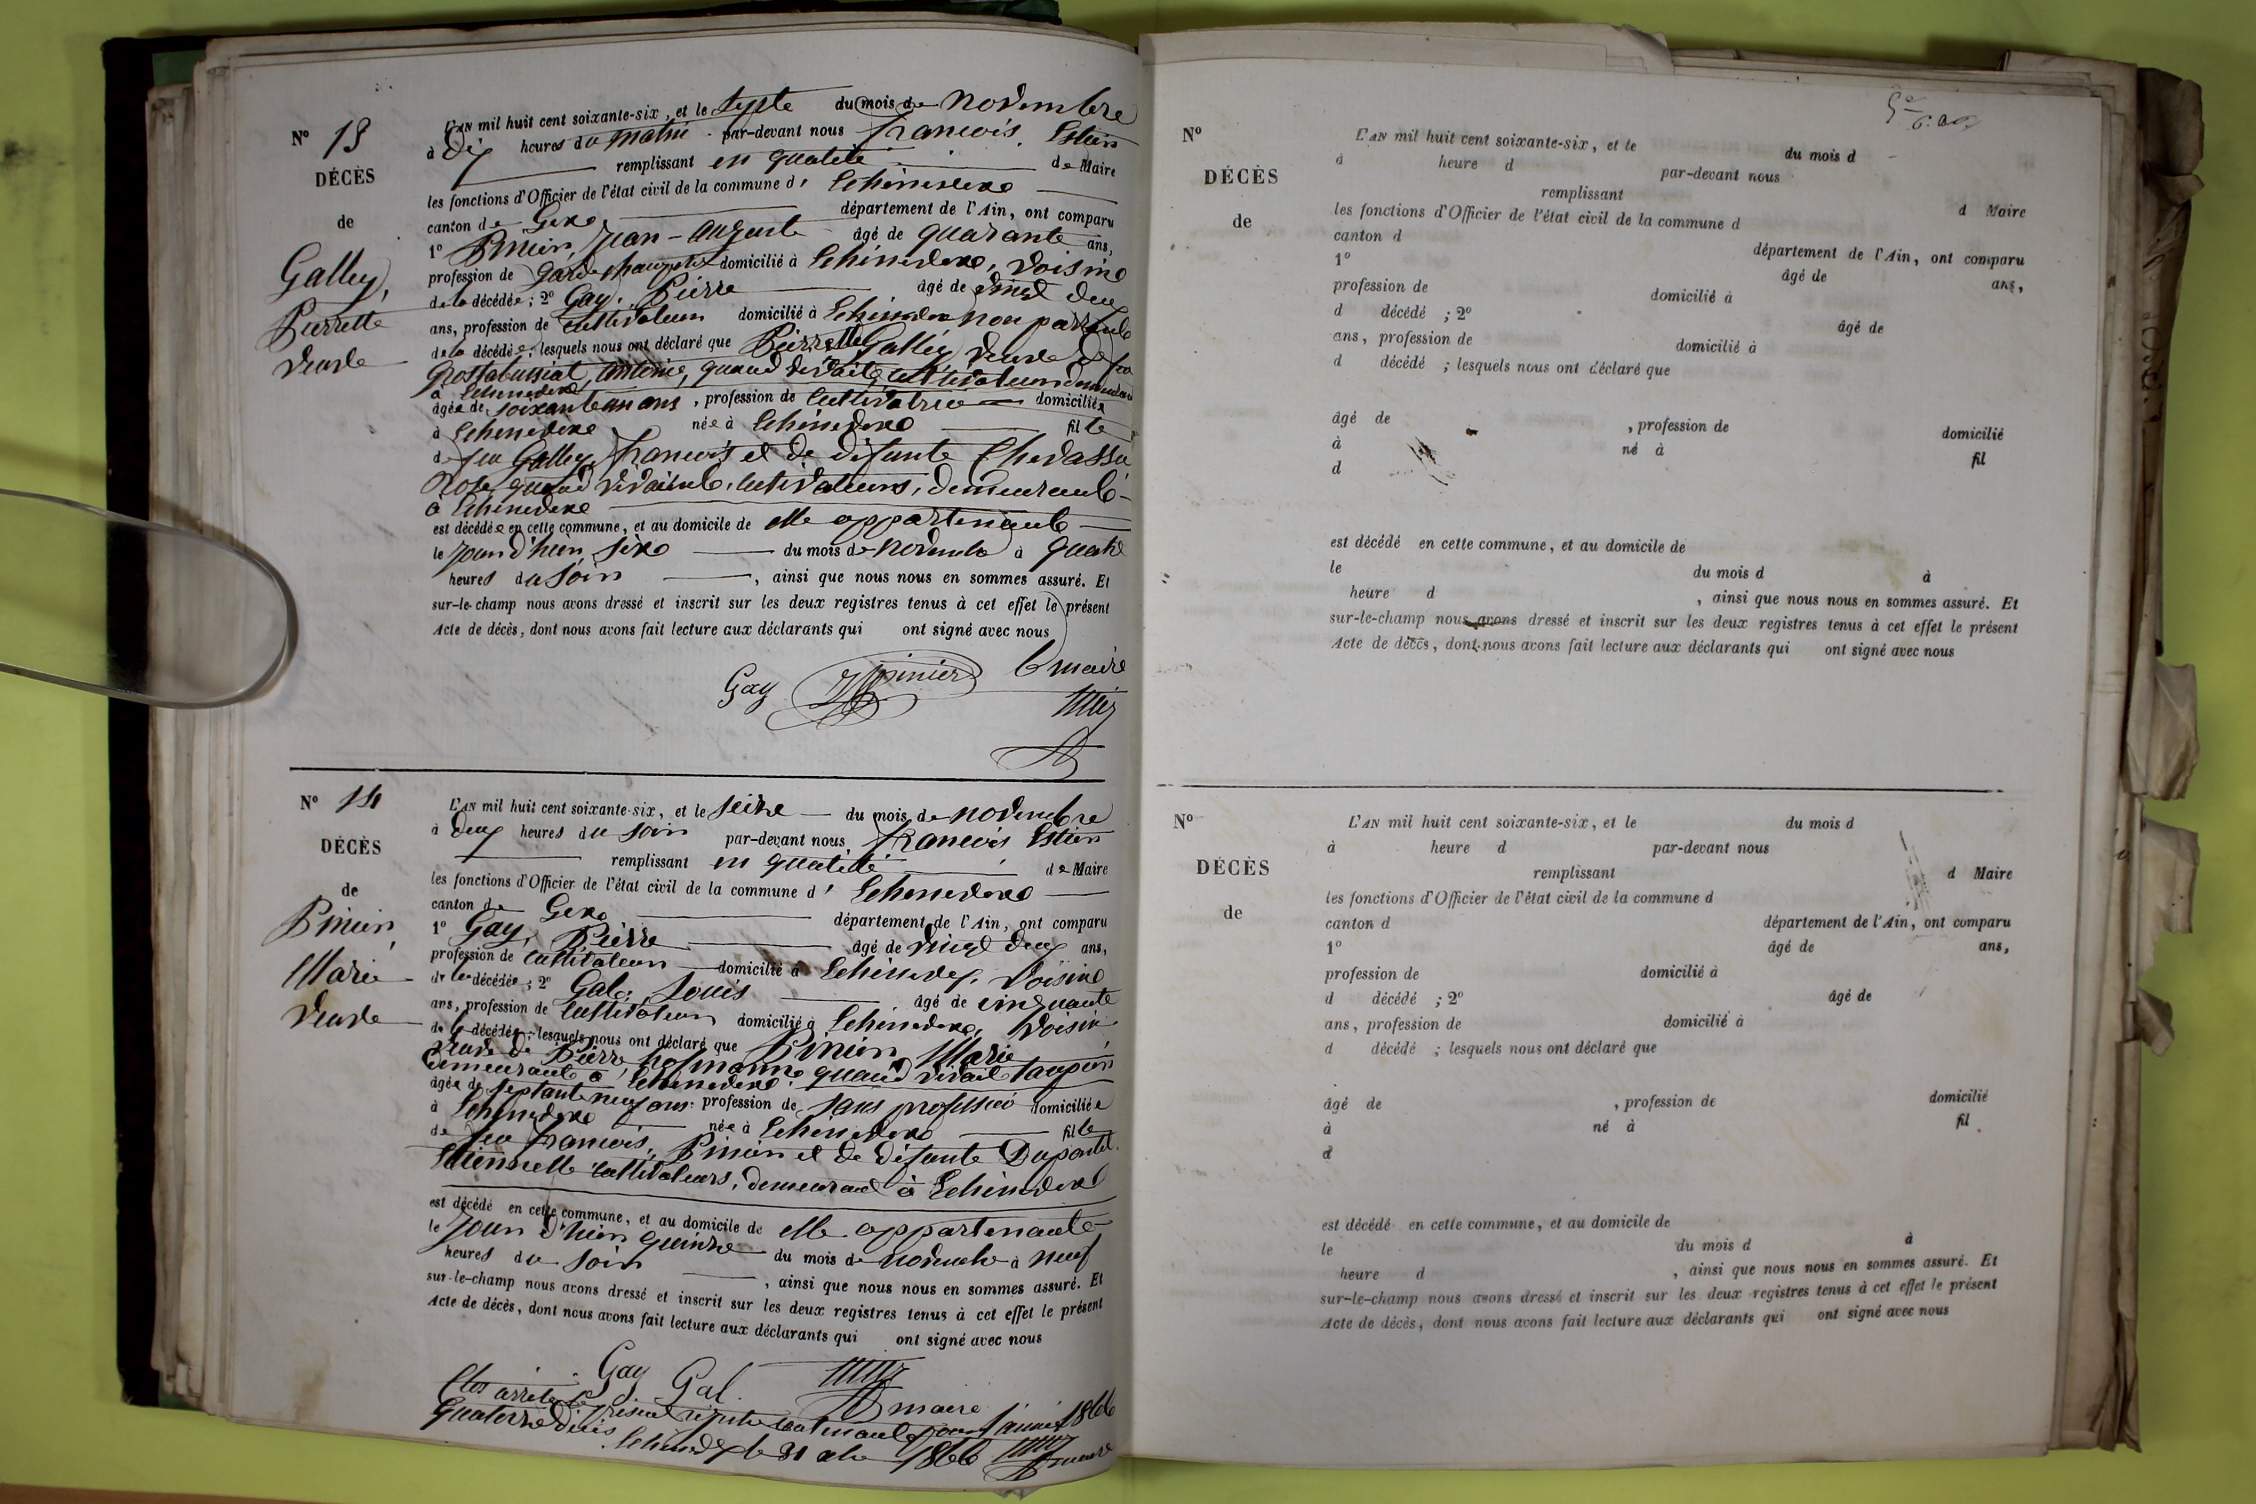 N° 13
DÉCÈS
de
Galley,
Pierrette
veuve
L'AN mil huit cent soixante-six, et le sept du mois de novembre
à dix heures du matin par-devant nous françois Estier
remplissant en qualité de Maire
les fonctions d'Officier de l'état civil de la commune d' Echenevex
canton de Gex département de l'Ain, ont comparu
1° Pinier, jean-auguste âgé de quarante ans,
profession de garde champetre domicilié à Echenevex, voisin
de la décédée; 2° Gay, Pierre âgé de vingt deux
ans, profession de cultivateur domicilié à Echenevex non parent
de la décédée; lesquels nous ont déclaré que Pierrette Galley veuve de feu
antoine, quand vivait, cultivateur demeurant
à Echenevex
âgée de soixante un ans, profession de cultivatrice domiciliée
à Echenevex née à Echenevex fille
de feu Galley françois et de défunte Chevassu
quand vivaient, cultivateurs, demeurant
à Echenevex
est décédée en cette commune, et au domicile de elle appartenant
le jour d'hier six du mois de novembre à quatre
heures du soir, ainsi que nous nous en sommes assuré. Et
sur-le-champ nous avons dressé et inscrit sur les deux registres tenus à cet effet le présent
Acte de décès, dont nous avons fait lecture aux déclarants qui ont signé avec nous
Gay Pinier le maire
N° 14
DÉCÈS
de
Pinier,
Marie
veuve
L'AN mil huit cent soixante-six, et le seize du mois de novembre
à deux heures du soir par-devant nous françois Estier
remplissant en qualité de Maire
les fonctions d'Officier de l'état civil de la commune d' Echenevex
canton de Gex département de l'Ain, ont comparu
1° Gay, Pierre âgé de vingt deux ans,
profession de cultivateur domicilié à Echenevex, voisin
de la décédée; 2° Gal, Louis âgé de cinquante
ans, profession de cultivateur domicilié à Echenevex, voisin
de la décédée; lesquels nous ont déclaré que Pinier Marie
veuve de Pierre, hofmann quand vivait
demeurant à Echenevex
âgée de septante neuf ans profession de sans profession domiciliée
à Echenevex née à Echenevex fille
de feu françois, Pinier et de défunte Dupontet
Etiennette cultivateurs, demeurant à Echenevex
est décédé en cette commune, et au domicile de elle appartenant
le jour d'hier quinze du mois de novembre à neuf
heures du soir, ainsi que nous nous en sommes assuré. Et
sur-le-champ nous avons dressé et inscrit sur les deux registres tenus à cet effet le présent
Acte de décès, dont nous avons fait lecture aux déclarants qui ont signé avec nous
Gay Gal. maire
Clos arrêté le présent registre contenant pour l'année 1866
Quatorze décès
Echenevex le 31 1866 maire
N°
DÉCÈS
de
L'AN mil huit cent soixante-six, et le du mois d
à heure d par-devant nous
remplissant d Maire
les fonctions d'Officier de l'état civil de la commune d
canton d département de l'Ain, ont comparu
1° âgé de ans,
profession de domicilié à
d décédé ; 2° âgé de
ans, profession de domicilié à
d décédé ; lesquels nous ont déclaré que
âgé de , profession de domicilié
à né à fil
d
est décédé en cette commune, et au domicile de
le du mois d à
heure d , ainsi que nous nous en sommes assuré. Et
sur-le-champ nous avons dressé et inscrit sur les deux registres tenus à cet effet le présent
Acte de décès, dont nous avons fait lecture aux déclarants qui ont signé avec nous
N°
DÉCÈS
de
L'AN mil huit cent soixante-six, et le du mois d
à heure d par-devant nous
remplissant d Maire
les fonctions d'Officier de l'état civil de la commune d
canton d département de l'Ain, ont comparu
1° âgé de ans,
profession de domicilié à
d décédé ; 2° âgé de
ans, profession de domicilié à
d décédé ; lesquels nous ont déclaré que
âgé de , profession de domicilié
à né à fil
d
est décédé en cette commune, et au domicile de
le du mois d à
heure d , ainsi que nous nous en sommes assuré. Et
sur-le-champ nous avons dressé et inscrit sur les deux registres tenus à cet effet le présent
Acte de décès, dont nous avons fait lecture aux déclarants qui ont signé avec nous